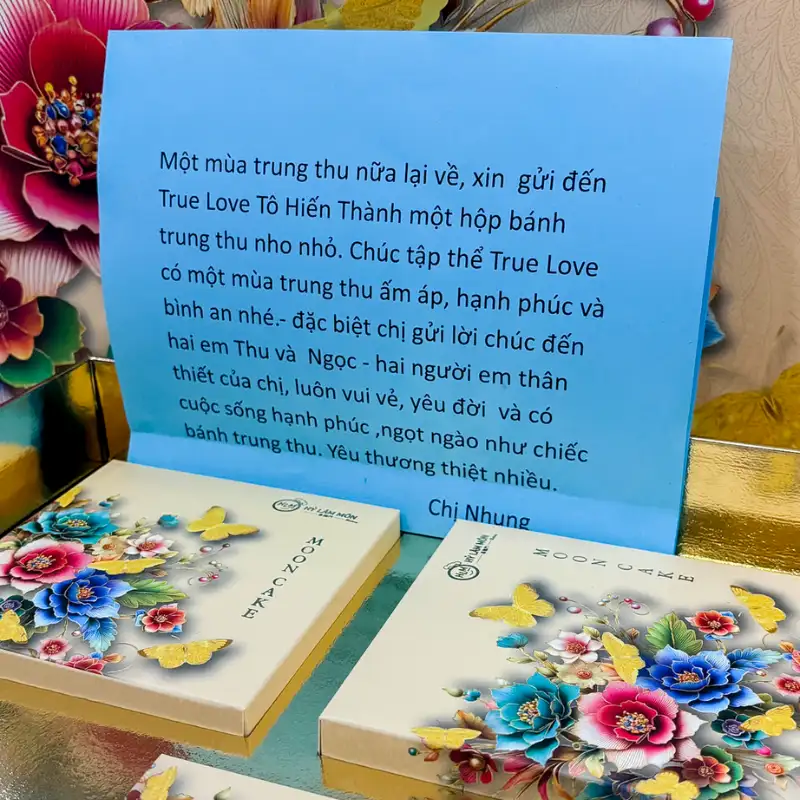 Một mùa trung thu nữa lại về, xin gửi đến
True Love Tô Hiến Thành một hộp bánh
trung thu nho nhỏ. Chúc tập thể True Love
có một mùa trung thu ấm áp, hạnh phúc và
bình an nhé.- đặc biệt chị gửi lời chúc đến
hai em Thu và Ngọc - hai người em thân
thiết của chị, luôn vui vẻ, yêu đời và có
cuộc sống hạnh phúc ,ngọt ngào như chiếc
bánh trung thu. Yêu thương thiệt nhiều.
Chị Nhung
HỶ LÂM MÔN
MOON CAKE
HỶ LÂM MÔN
MOON CAKE